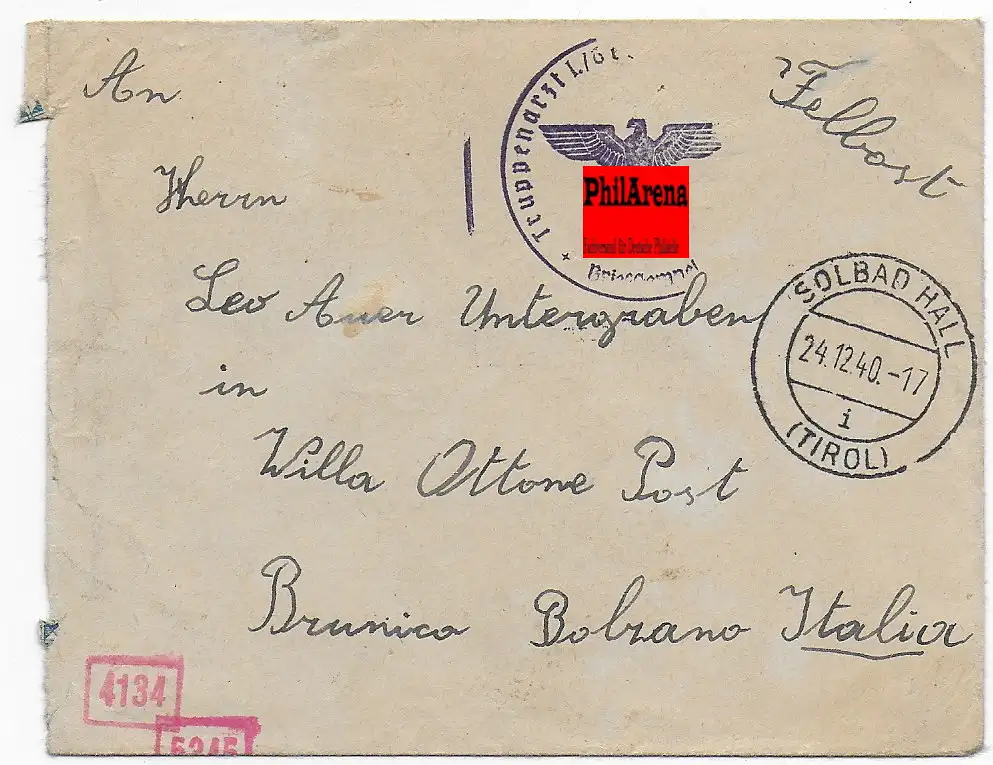 An
Felbost
Herrn
Leo Auer Untergraben
in
Willa Ottone Post
Brunico Bolzano Italia
Truppenarzt I./
Briefstempel
PhilArena
Fachversand für Deutsche Philatelie
SOLBAD HALL
24.12.40.-17
i
(TIROL)
4134
5245